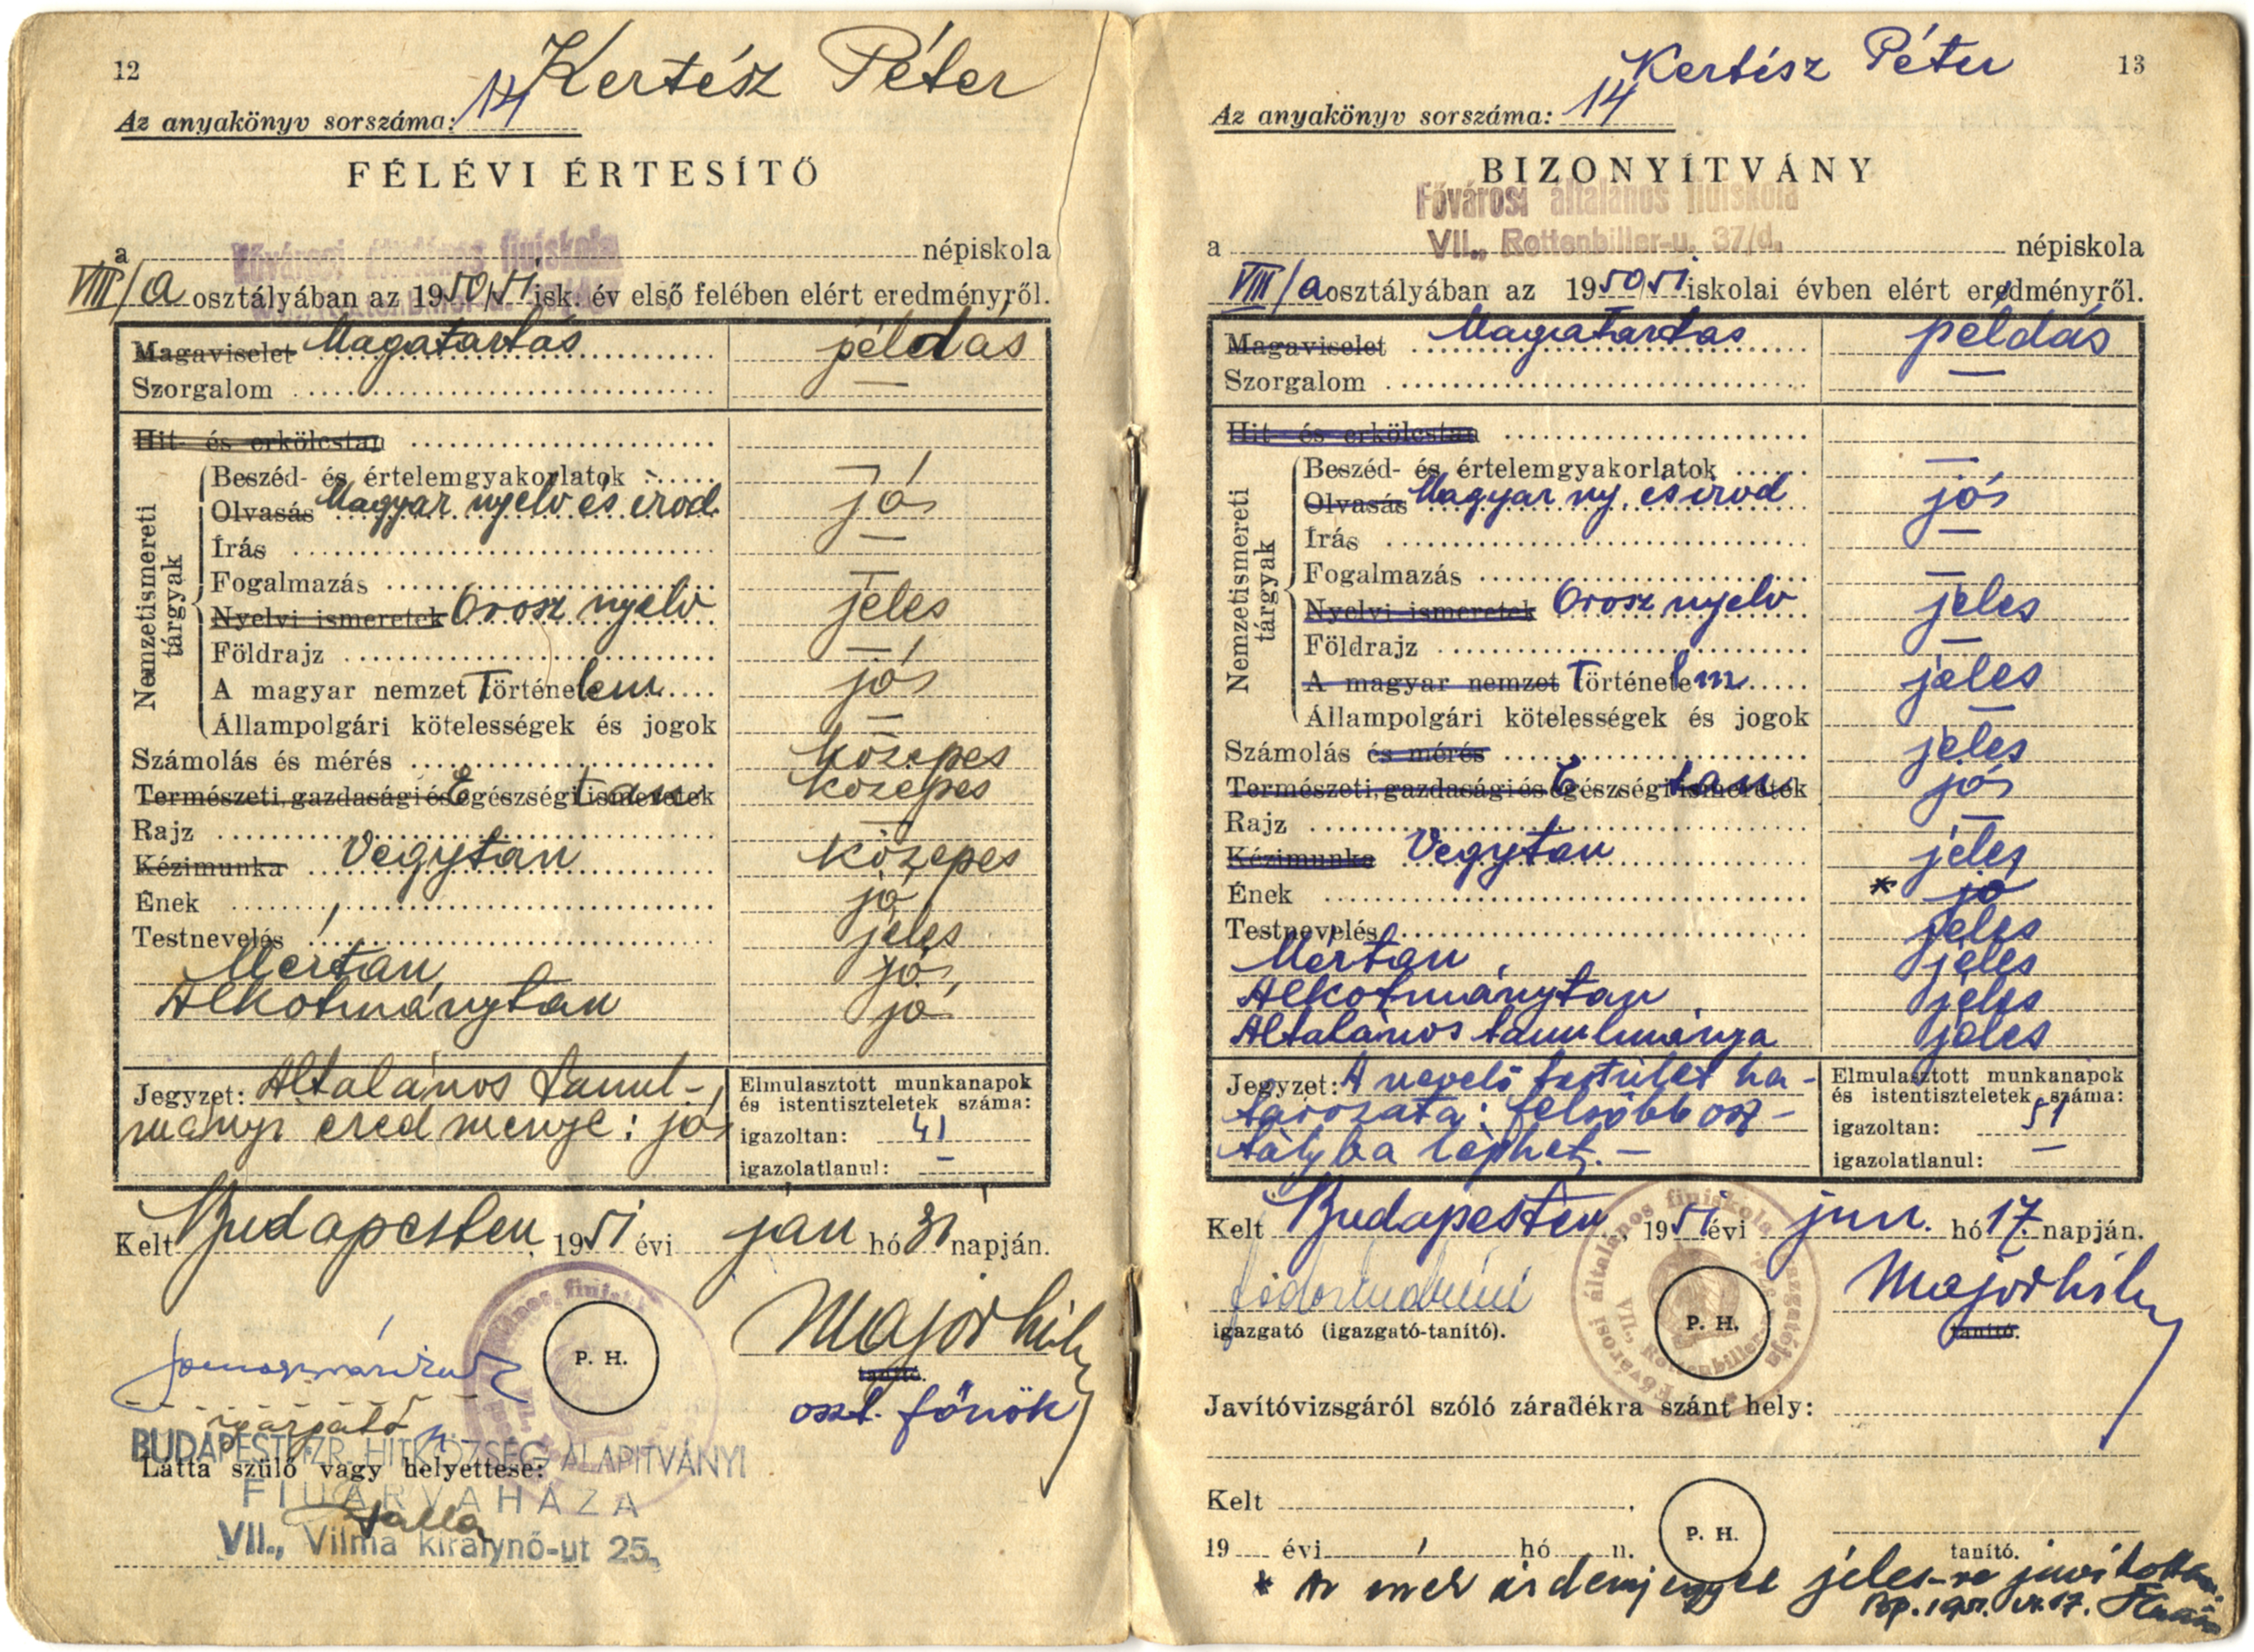 12
Kertész Péter
Az anyakönyv sorszáma: 14
FÉLÉVI ÉRTESÍTŐ
Fővárosi általános fiuiskola
a népiskola
VIII/a osztályában az 1950/51 isk. év első felében elért eredményről.
Magaviselet Magatartás példás
Szorgalom —
Hit- és erkölcstan
Nemzetismereti tárgyak
Beszéd- és értelemgyakorlatok —
Olvasás Magyar nyelv és irod. jó
Írás —
Fogalmazás —
Nyelvi ismeretek Orosz nyelv jeles
Földrajz —
A magyar nemzet Történelem jó
Állampolgári kötelességek és jogok —
Számolás és mérés közepes
Természeti, gazdasági és Egészségi ismeretek tan közepes
Rajz —
Kézimunka Vegytan közepes
Ének jó
Testnevelés jeles
Mértan jó
Alkotmánytan jó
Jegyzet: Általános tanul-
mányi eredménye: jó
Elmulasztott munkanapok
és istentiszteletek száma:
igazoltan: 41
igazolatlanul: —
Kelt Budapesten, 1951 évi jan hó 31 napján.
P. H.
Majorhily
tanító.
oszt. főnök
igazgató
BUDAPESTI IZR. HITKÖZSÉG ALAPITVÁNYI
Látta szülő vagy helyettese:
FIUÁRVAHÁZA
VII., Vilma királynő-ut 25.
13
Kertész Péter
Az anyakönyv sorszáma: 14
BIZONYÍTVÁNY
Fővárosi általános fiuiskola
VII., Rottenbiller-u. 37/d.
a népiskola
VIII/a osztályában az 1950/51 iskolai évben elért eredményről.
Magaviselet Magatartás példás
Szorgalom —
Hit- és erkölcstan
Nemzetismereti tárgyak
Beszéd- és értelemgyakorlatok —
Olvasás Magyar ny. és irod jó
Írás —
Fogalmazás —
Nyelvi ismeretek Orosz nyelv jeles
Földrajz —
A magyar nemzet Történelem jeles
Állampolgári kötelességek és jogok —
Számolás és mérés jeles
Természeti, gazdasági és Egészségi ismeretek tan jó
Rajz —
Kézimunka Vegytan jeles
Ének * jó
Testnevelés jeles
Mértan jeles
Alkotmánytan jeles
Általános tanulmánya jeles
Jegyzet: A nevelő testület ha-
tározata: felsőbb osz-
tályba léphet. —
Elmulasztott munkanapok
és istentiszteletek száma:
igazoltan: 51
igazolatlanul: —
Kelt Budapesten, 1951 évi jun. hó 17. napján.
Majorhily
igazgató (igazgató-tanító).
P. H.
tanító.
Javítóvizsgáról szóló záradékra szánt hely:
Kelt
P. H.
19 évi hó n.
tanító.
* Az ének érdemjegyet jeles-re javította
Bp. 1951. VI. 17.